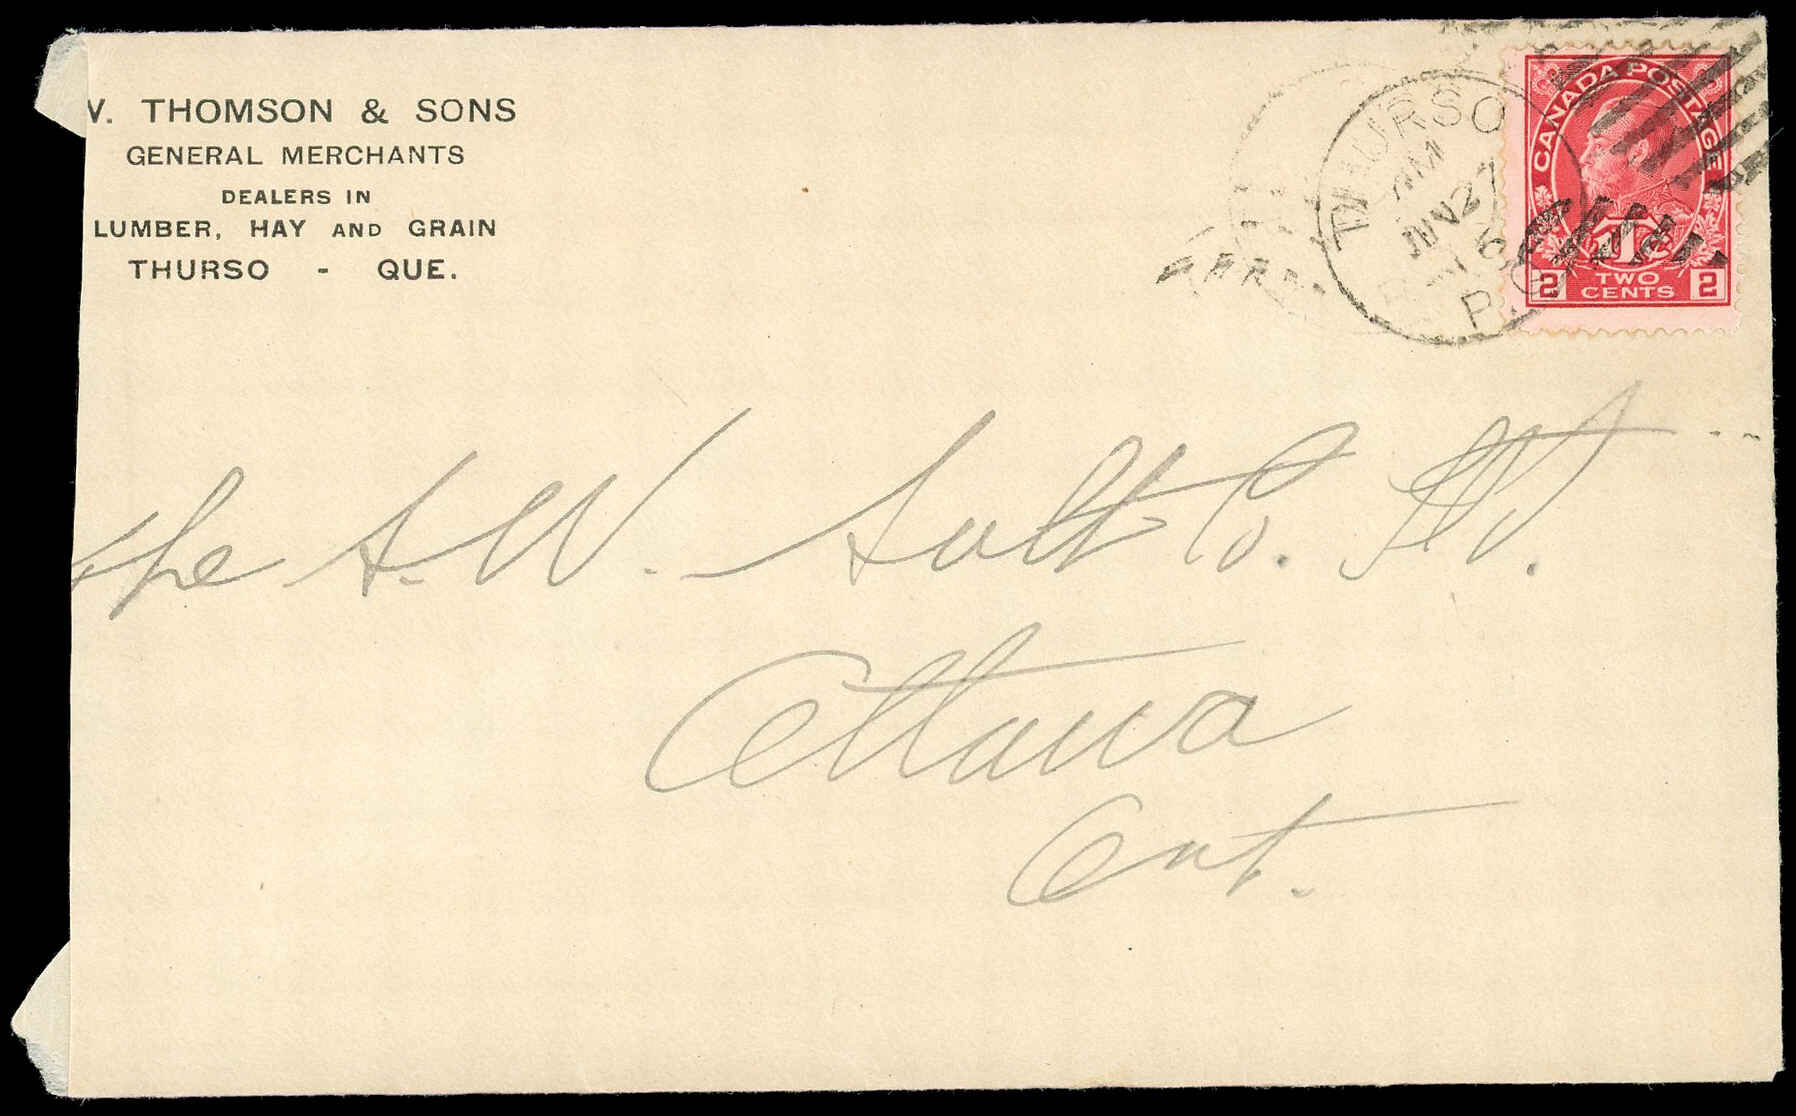 V. THOMSON & SONS
GENERAL MERCHANTS
DEALERS IN
LUMBER, HAY AND GRAIN
THURSO - QUE.
THURSO
AM
JUN 27
16
P.Q.
CANADA POSTAGE
1Tc
2 TWO CENTS 2
The A. W. Salt Co.
Ottawa
Ont.